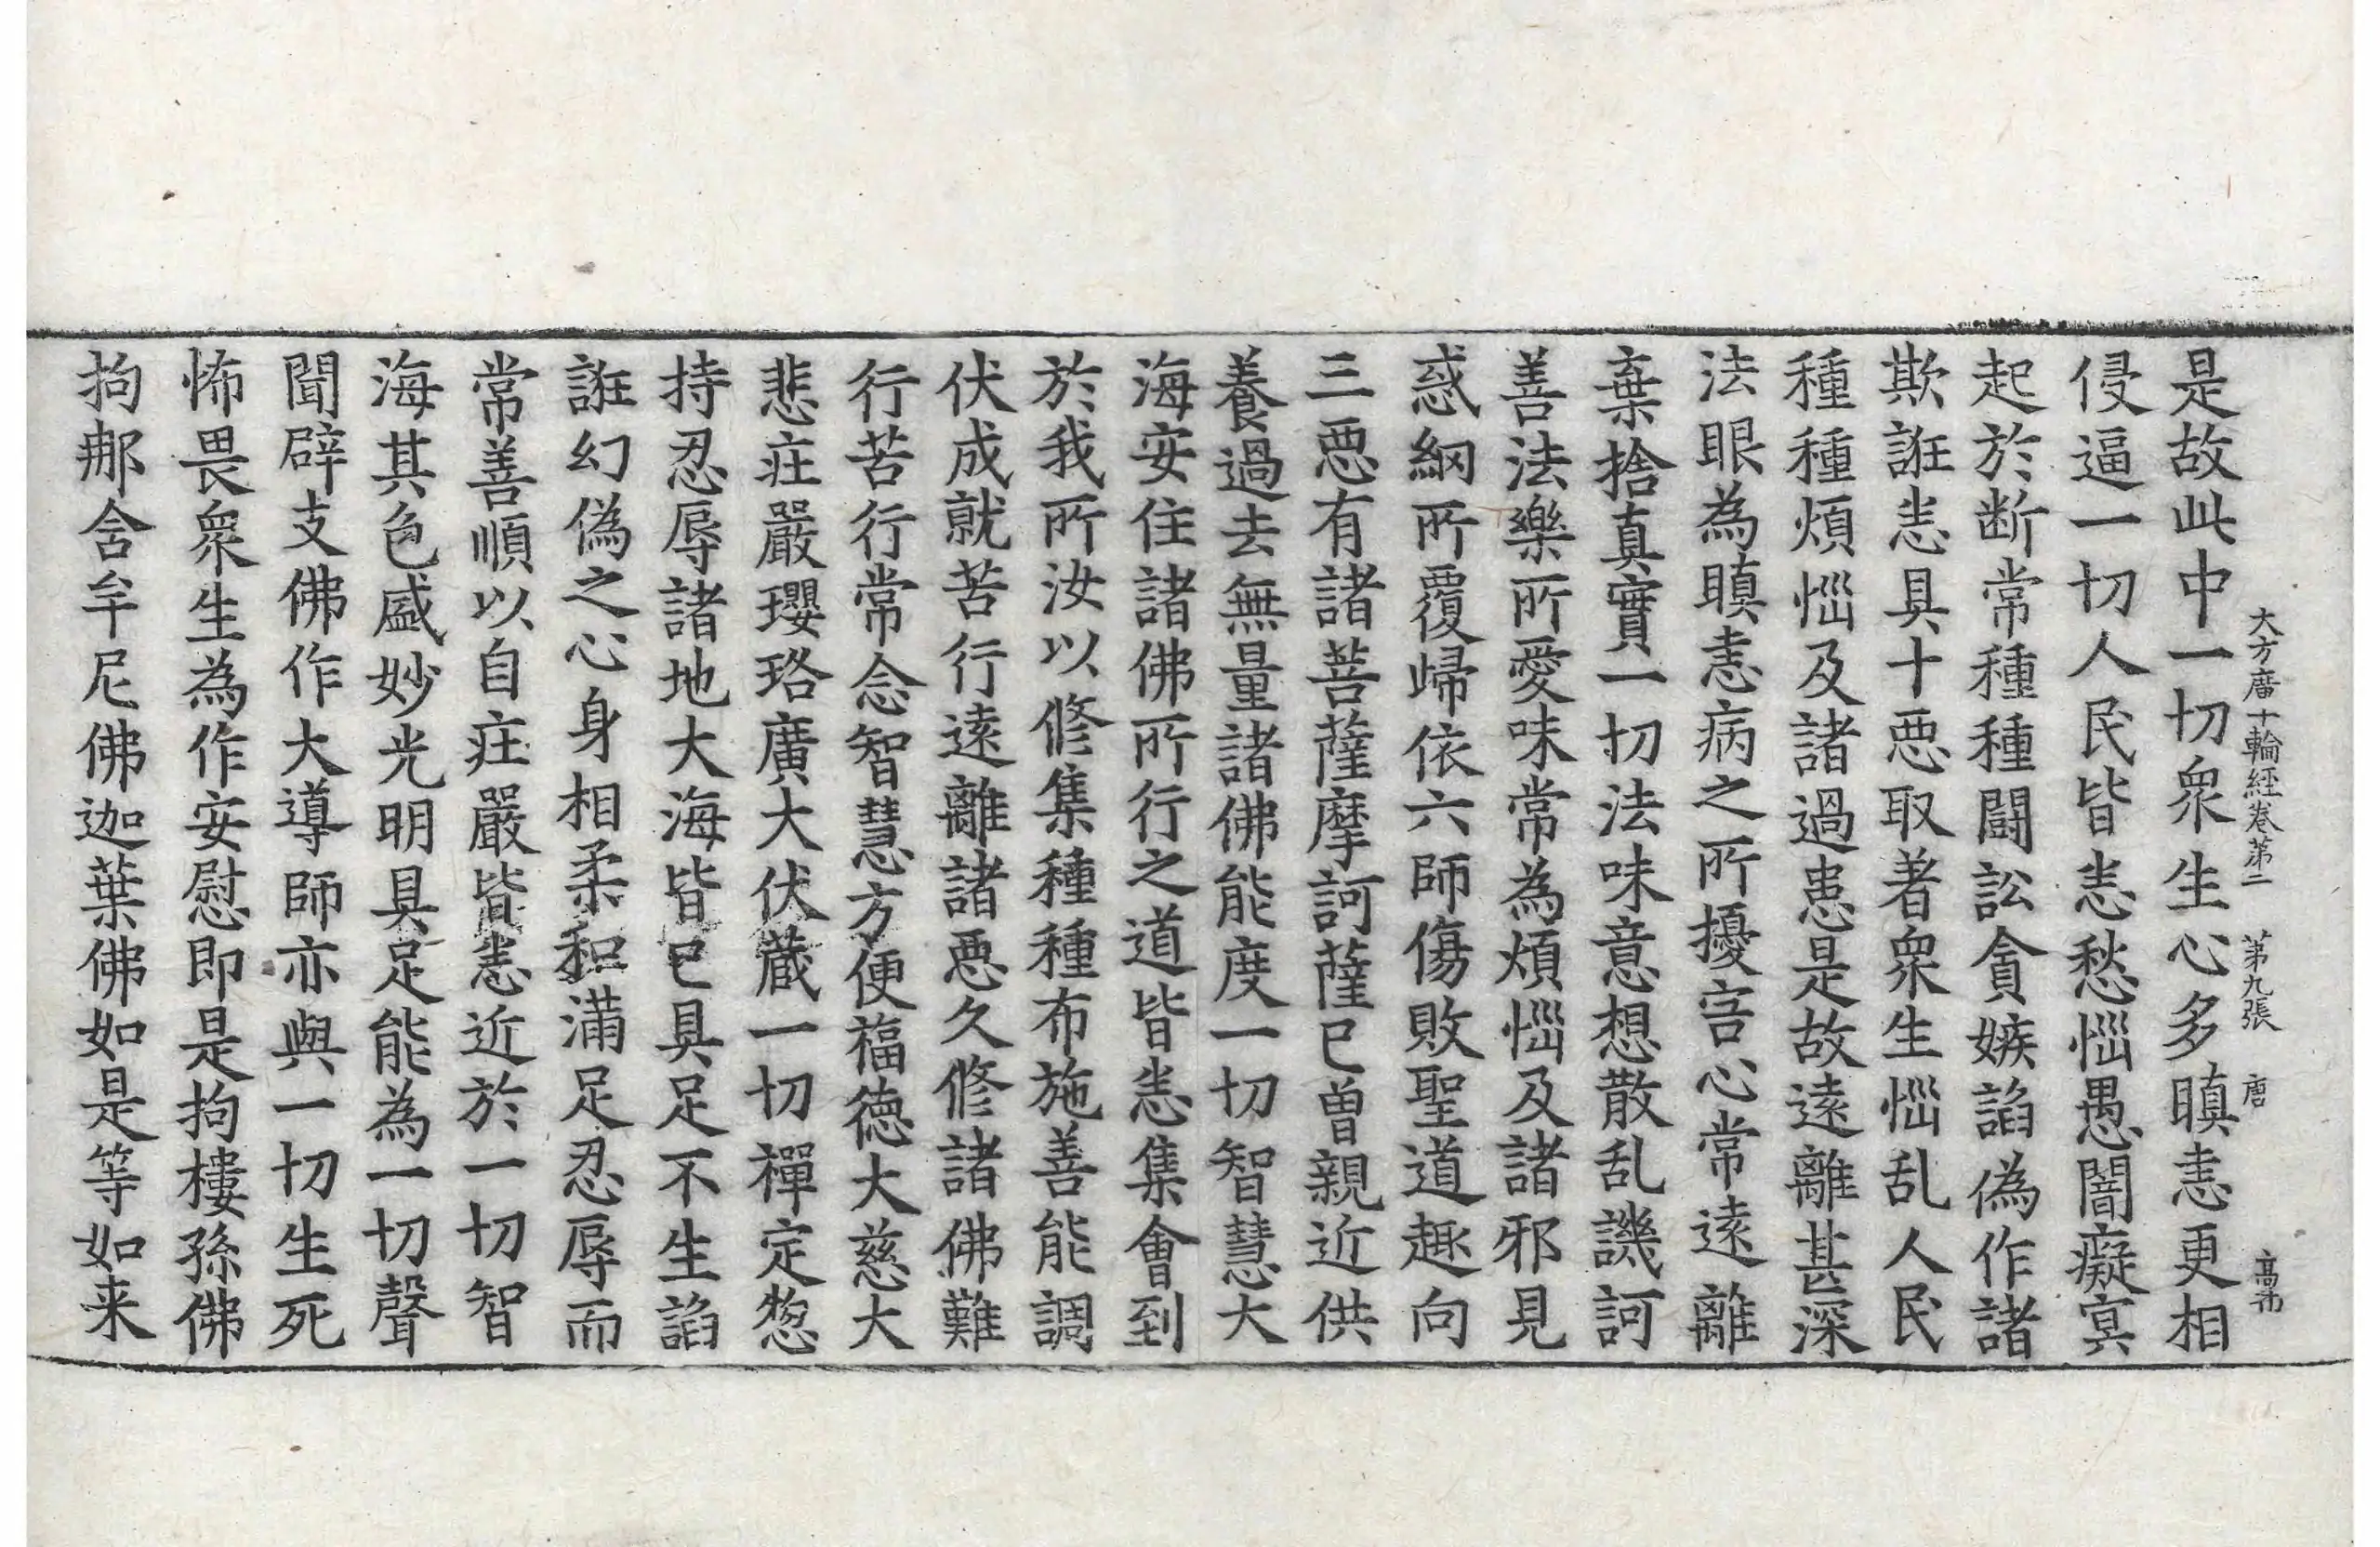 大方廣十輪經卷第二 第九張 唐
是故此中一切衆生心多瞋恚更相
侵逼一切人民皆悉愁惱愚闇癡冥
起於断常種種闘訟貪嫉諂偽作諸
欺誑悉具十惡取著衆生惱乱人民
種種煩惱及諸過患是故遠離甚深
法眼為瞋恚病之所擾害心常遠離
棄捨真實一切法味意想散乱譏訶
善法樂所愛味常為煩惱及諸邪見
惑網所覆歸依六師傷敗聖道趣向
三惡有諸菩薩摩訶薩已曾親近供
養過去無量諸佛能度一切智慧大
海安住諸佛所行之道皆悉集會到
於我所汝以修集種種布施善能調
伏成就苦行遠離諸惡久修諸佛難
行苦行常念智慧方便福德大慈大
悲莊嚴瓔珞廣大伏蔵一切禪定惣
持忍辱諸地大海皆已具足不生諂
誑幻偽之心身相柔和滿足忍辱而
常善順以自莊嚴皆悉近於一切智
海其色盛妙光明具足能為一切聲
聞辟支佛作大導師亦與一切生死
怖畏衆生為作安慰即是拘樓孫佛
拘那含牟尼佛迦葉佛如是等如来